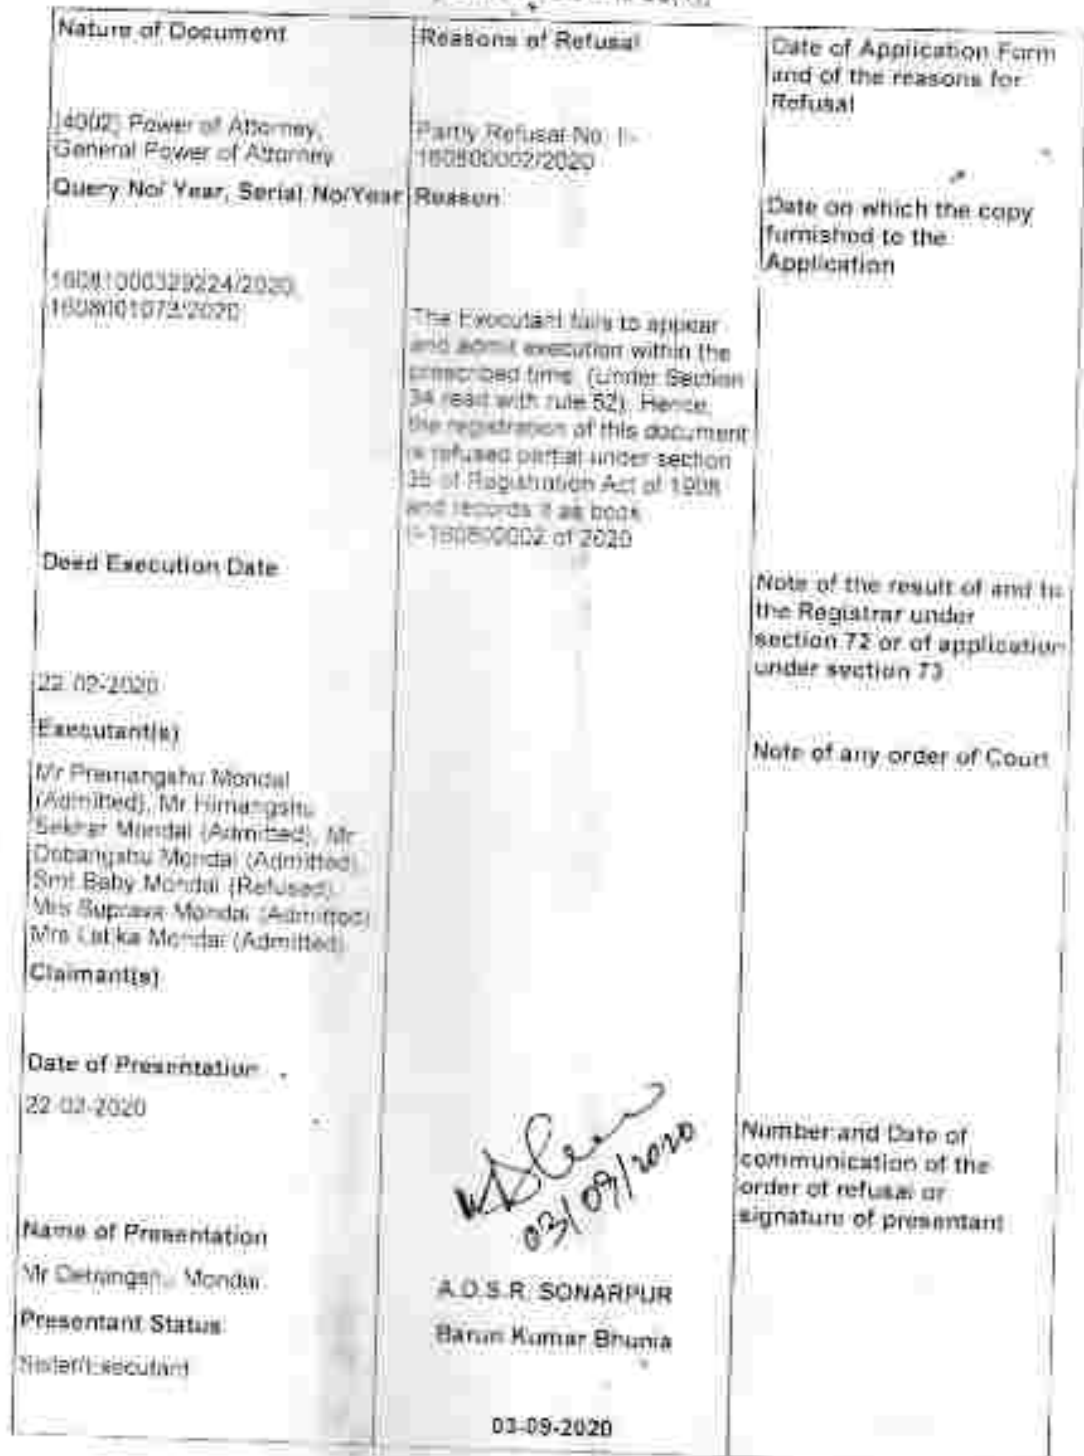 Nature of Document
[4002] Power of Attorney,
General Power of Attorney
Query No/ Year, Serial No/Year
16081000329224/2020,
1608001073/2020
Deed Execution Date
22-02-2020
Executant(s)
Mr Premangshu Mondal
(Admitted), Mr Himangshu
Sekhar Mondal (Admitted), Mr
Debangshu Mondal (Admitted),
Smt Baby Mondal (Refused),
Mrs Suprava Mondal (Admitted)
Mrs Latika Mondal (Admitted)
Claimant(s)
Date of Presentation
22-02-2020
Name of Presentation
Mr Debangshu Mondal
Presentant Status
/Executant
Reasons of Refusal
Partly Refusal No. I-
160800002/2020
Reason
The Executant fails to appear
and admit execution within the
prescribed time. (Under Section
34 read with rule 52). Hence,
the registration of this document
is refused partial under section
35 of Registration Act of 1908
and records it as book
I-160800002 of 2020
03/09/2020
A.D.S.R. SONARPUR
Barun Kumar Bhunia
03-09-2020
Date of Application Form
and of the reasons for
Refusal
Date on which the copy
furnished to the
Application
Note of the result of and to
the Registrar under
section 72 or of application
under section 73
Note of any order of Court
Number and Date of
communication of the
order of refusal or
signature of presentant